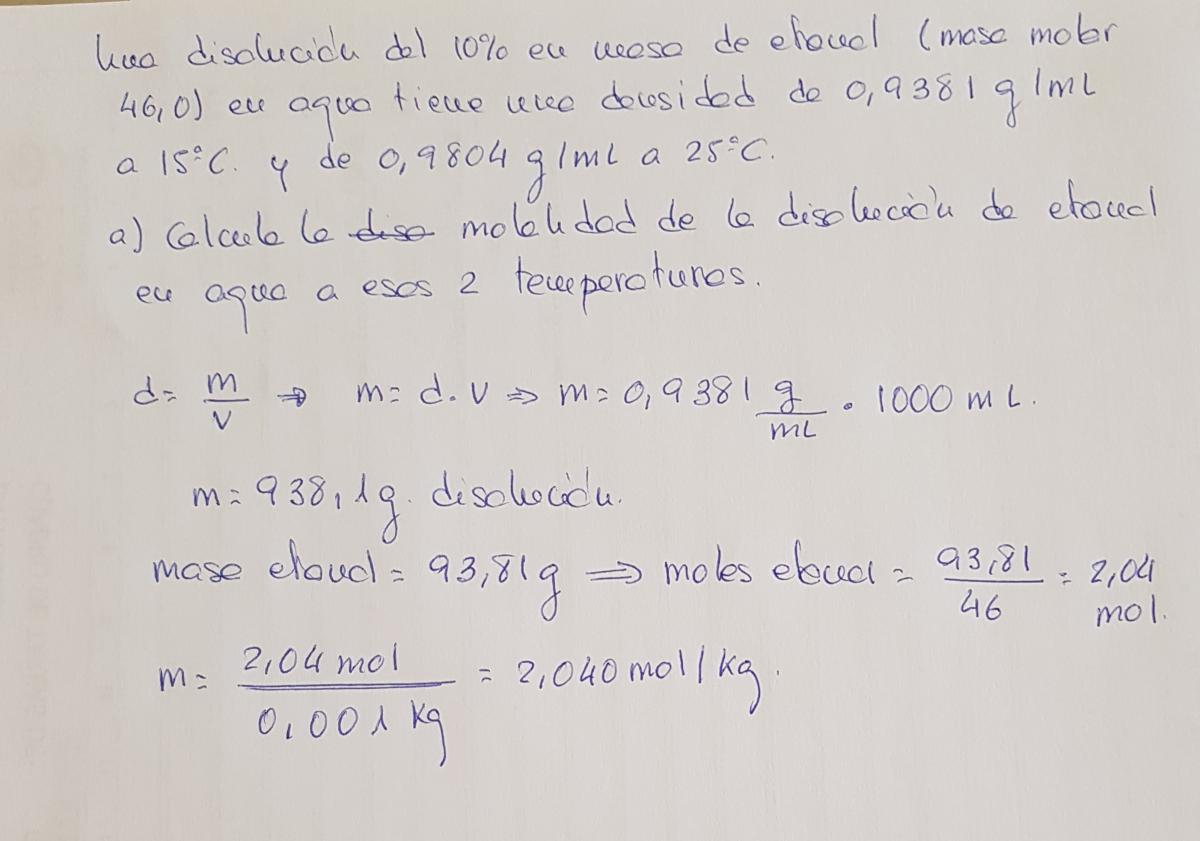 Una disolución del 10% en masa de etanol (masa molar
46,0) en agua tiene una densidad de 0,9381 g/mL
a 15°C. y de 0,9804 g/mL a 25°C.
a) Calcula la diso molalidad de la disolución de etanol
en agua a esas 2 temperaturas.
d = m/V ⇒ m = d. V ⇒ m = 0,9381 g/mL . 1000 mL.
m = 938,1g. disolución.
masa etanol = 93,81g ⇒ moles etanol = 93,81/46 = 2,04 mol.
m = 2,04 mol/0,001 kg = 2,040 mol/kg.